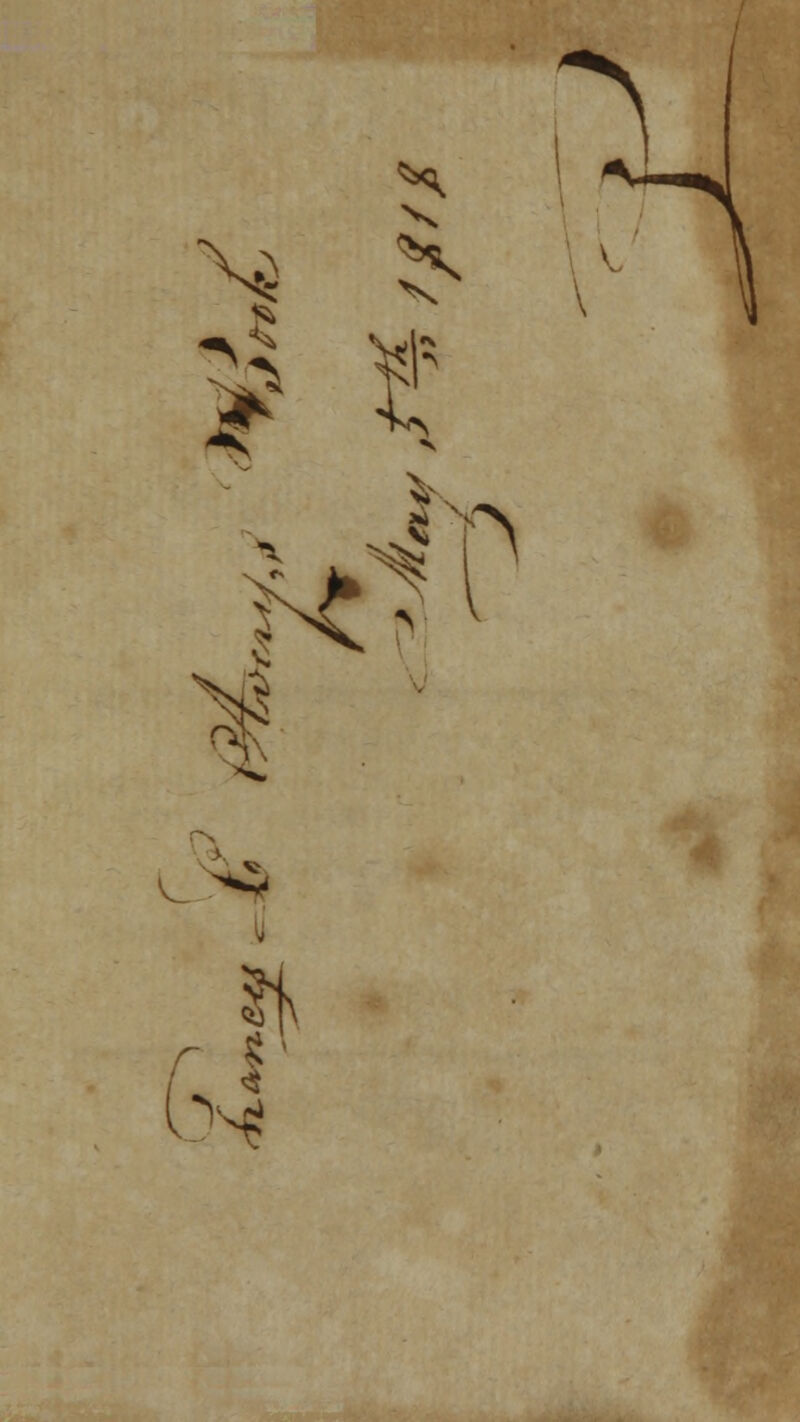 Frances L Avery's Book
May 5th 1818